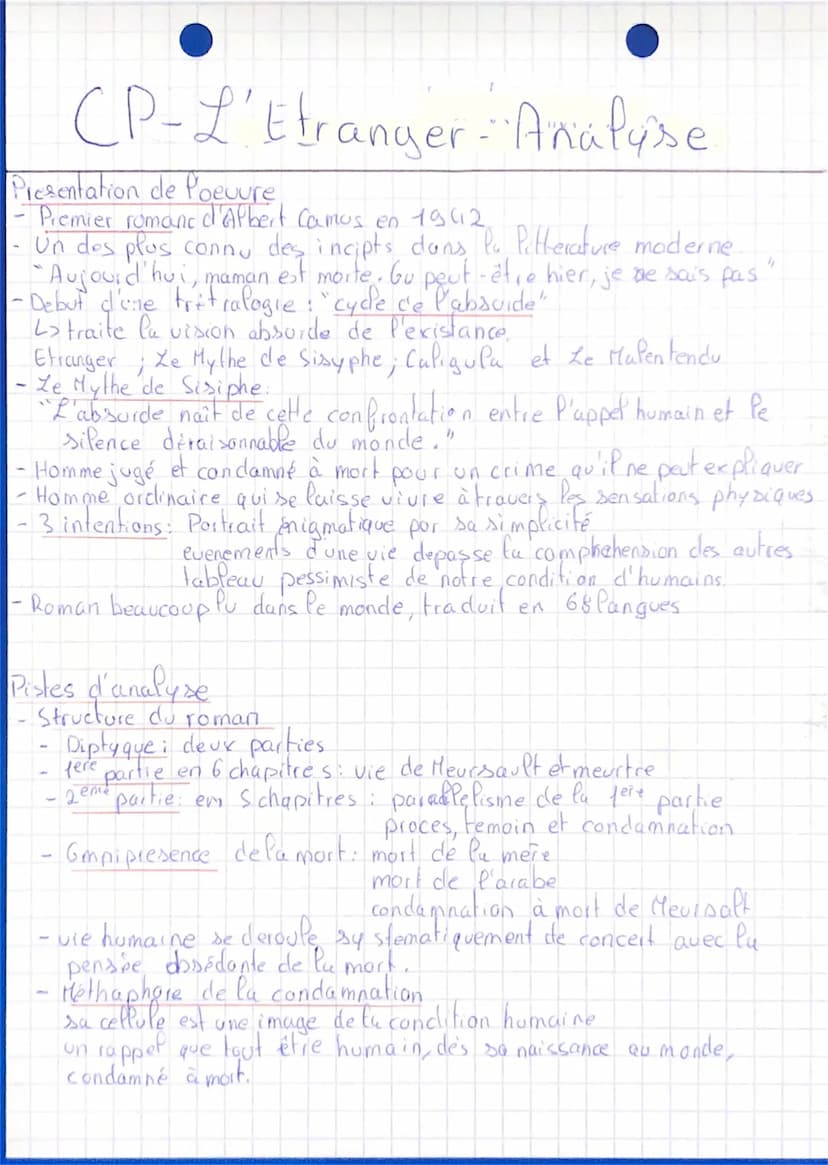 CP-L'Etranger-Analyse
Presentation de l'oeuvre
- Premier romanc d'Albert Camus en 1942
- Un des plus connu des incipts dans la litterature moderne
"Aujourd'hui, maman est morte. Ou peut-être hier, je ne sais pas"
- Debut d'une tetralogie : "cycle de l'absurde"
L> traite la vision absurde de l'existance
Etranger ; Le Mythe de Sisyphe ; Caligula et Le Malentendu
- Le Mythe de Sisiphe:
"L'absurde naît de cette confrontation entre l'appel humain et le
silence déraisonnable du monde."
- Homme jugé et condamné à mort pour un crime qu'il ne peut expliquer
- Homme ordinaire qui se laisse vivre à travers les sensations physiques
- 3 intentions: Portrait énigmatique par sa simplicité
evenements d'une vie depasse la comprehension des autres
tableau pessimiste de notre condition d'humains.
- Roman beaucoup lu dans le monde, traduit en 68 langues
Pistes d'analyse
- Structure du roman
- Diptyque : deux parties
- 1ère partie en 6 chapitres : vie de Meursault et meurtre
- 2ème partie: en 5 chapitres : parallelisme de la 1ere partie
proces, temoin et condamnation
- Omnipresence de la mort : mort de la mère
mort de l'arabe
condamnation à mort de Meursalt
- vie humaine se deroule systematiquement de concert avec la
pensée obsédante de la mort.
- Méthaphore de la condamnation
sa cellule est une image de la condition humaine
un rappel que tout être humain, dès sa naissance au monde,
condamné à mort.